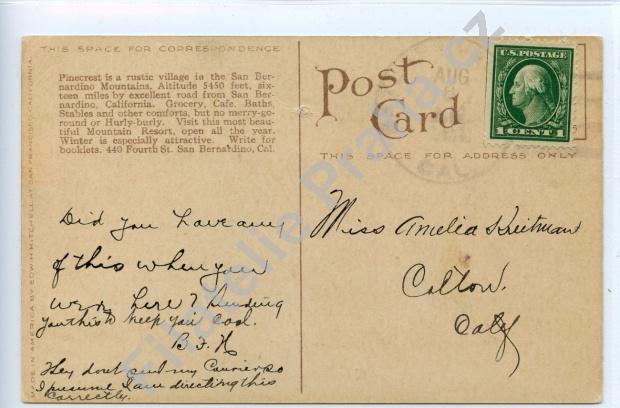 THIS SPACE FOR CORRESPONDENCE
Pinecrest is a rustic village in the San Ber-
nardino Mountains. Altitude 5450 feet, six-
teen miles by excellent road from San Ber-
nardino, California. Grocery, Cafe, Baths,
Stables and other comforts, but no merry-go-
round or Hurly-burly. Visit this most beau-
tiful Mountain Resort, open all the year.
Winter is especially attractive. Write for
booklets. 440 Fourth St. San Bernardino, Cal.
MADE IN AMERICA BY EDW. H. MITCHELL AT SAN FRANCISCO, CALIFORNIA.
Did you have any
of this when you
were here? Sending
you this to keep you cool.
B. F. H
Hey dont send my Courier so
I presume I am directing this
correctly.
Post Card
THIS SPACE FOR ADDRESS ONLY
AUG
CAL.
U.S. POSTAGE
1 CENT 1
Miss Amelia Kreitman
Colton.
Caly
Filatelie Praha.cz